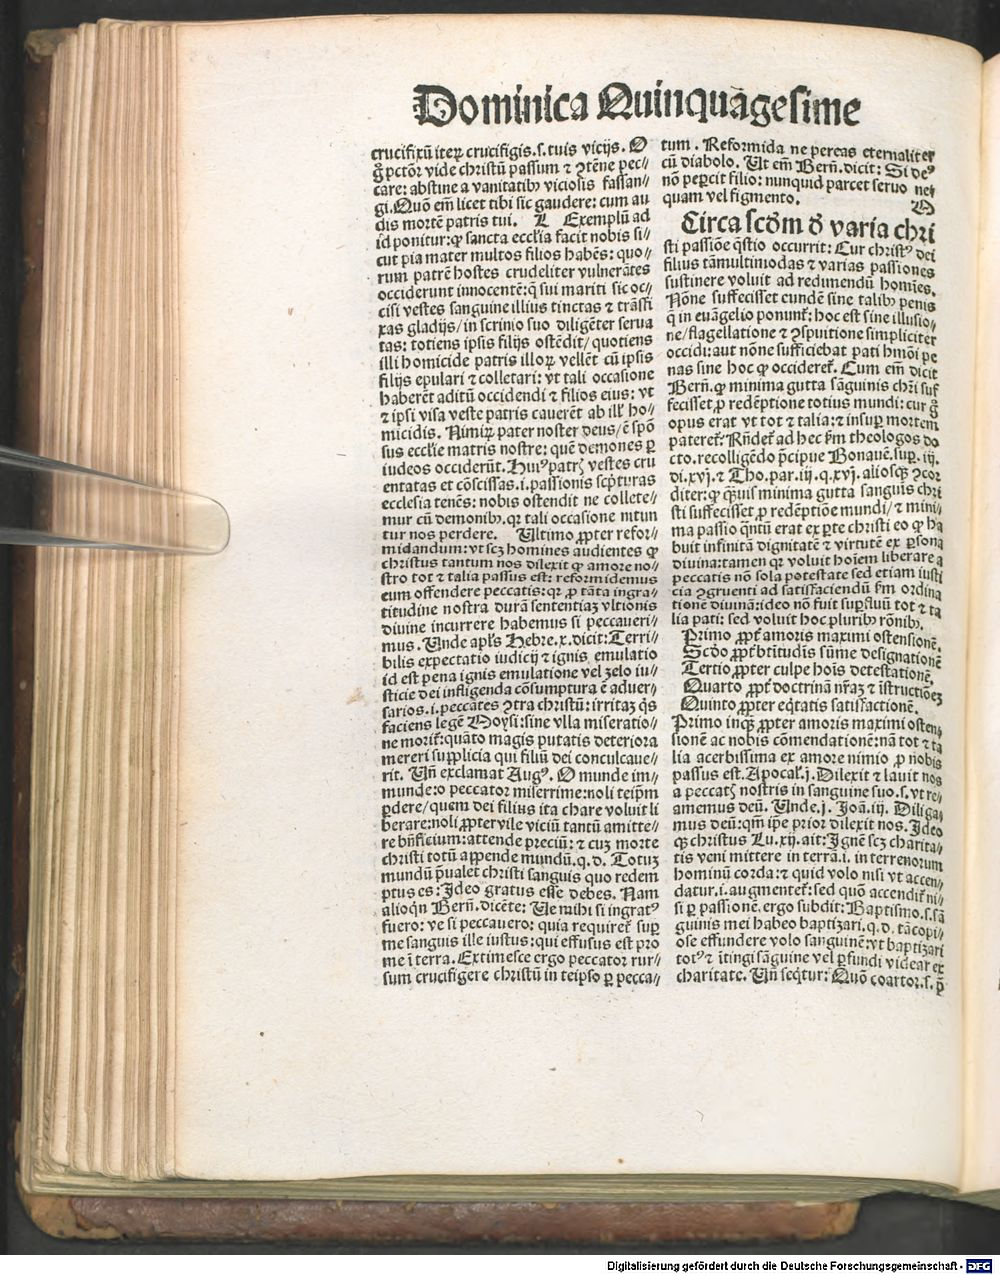 Dominica Quinquãgesime
crucifixũ iteꝝ crucifigis.s.tuis vicijs. O
g̊ pctõr vide christũ passum ⁊ ꝯtẽne pec⸗
care: abstine a vanitatibꝰ viciosis fassan⸗
gi. Quõ em̃ licet tibi sic gaudere: cum au
dis mortẽ patris tui. L Exemplũ ad
id ponitur: ꝙ sancta eccl'ia facit nobis si⸗
cut pia mater multos filios habẽs: quo⸗
rum patrẽ hostes crudeliter vulnerãtes
occiderunt innocentẽ: q̃ sui mariti sic oc⸗
cisi vestes sanguine illius tinctas ⁊ trãsfi
xas gladijs/ in scrinio suo diligẽter serua
tas: totiens ipsis filijs ostẽdit/ quotiens
illi homicide patris illoꝝ vellẽt cũ ipsis
filijs epulari ⁊ colletari: vt tali occasione
haberẽt aditũ occidendi ⁊ filios eius: vt
⁊ ipsi visa veste patris cauerẽt ab ill' ho⸗
micidis. Nimiꝝ pater noster deus/ ẽ spõ
sus eccl'ie matris nostre: quẽ demones ꝑ
iudeos occiderũt. Huiꝰ patrꝭ vestes cru
entatas et cõscissas .i. passionis scp̃turas
ecclesia tenẽs: nobis ostendit ne collete⸗
mur cũ demonibꝰ. qꝛ tali occasione nitun
tur nos perdere. Ultimo ꝓpter refor⸗
midandum: vt scꝫ homines audientes ꝙ
christus tantum nos dilexit ꝙ amore no⸗
stro tot ⁊ talia passus est: reformidemus
eum offendere peccatis: qꝛ ꝓ tãta ingra⸗
titudine nostra durã sententiaꝫ vltionis
diuine incurrere habemus si peccaueri⸗
mus. Unde apl's Hebre.x.dicit: Terri⸗
bilis expectatio iudicij ⁊ ignis emulatio
id est pena ignis emulatione vel zelo iu⸗
sticie dei infligenda cõsumptura ẽ aduer⸗
sarios .i. peccãtes ꝯtra christũ: irritaꝫ q̃s
faciens legẽ Moysi: sine vlla miseratio⸗
ne morit̃: quãto magis putatis deteriora
mereri supplicia qui filiũ dei conculcaue⸗
rit. Un̄ exclamat Augꝰ. O munde im⸗
munde: o peccator miserrime: noli teip̃m
ꝑdere/ quem dei filius ita chare voluit li
berare: noli ꝓpter vile viciũ tantũ amitte⸗
re bñficium: attende preciũ: ⁊ cuꝫ morte
christi totũ appende mundũ .q.d. Totuꝫ
mundũ p̃ualet christi sanguis quo redem
ptus es: Ideo gratus esse debes. Nam
alioqñ Berñ. dicẽte: Ve mihi si ingratꝰ
fuero: ve si peccauero: quia requiret̃ suꝑ
me sanguis ille iustus: qui effusus est pro
me ĩ terra. Extimesce ergo peccator rur⸗
sum crucifigere christũ in teipso ꝑ pecca⸗
tum. Reformida ne pereas eternaliter
cũ diabolo. Ut em̃ Berñ.dicit: Si deꝰ
nõ peꝑcit filio: nunquid parcet seruo ne⸗
quam vel figmento. M
Circa scd̃m d̓ varia chri
sti passiõe q̃stio occurrit: Cur christꝰ dei
filius tãmultimodas ⁊ varias passiones
sustinere voluit ad redimendũ homĩes.
Nõne suffecisset eundẽ sine talibꝰ penis
q̃ in euãgelio ponunt̃: hoc est sine illusio⸗
ne/ flagellatione ⁊ ꝯspuitione simpliciter
occidi: aut nõne sufficiebat pati hmõi pe
nas sine hoc ꝙ occideret̃. Cum em̃ dicit
Berñ. ꝙ minima gutta sãguinis chr̃i suf
fecisset ꝓ redẽptione totius mundi: cur g̊
opus erat vt tot ⁊ talia: ⁊ insuꝑ mortem
pateret̃: Rñdet̃ ad hec ẜm theologos do
cto. recolligẽdo p̃cipue Bonauẽ. suꝑ .iij.
di.xvj.⁊ Tho.par.iij.q.xvj. aliosqꝫ ꝯcor
diter: ꝙ q̃uis minima gutta sanguis chri
sti suffecisset ꝓ redẽptiõe mundi/ ⁊ mini⸗
ma passio q̃ntũ erat ex ꝑte christi eo ꝙ ha
buit infinitã dignitatẽ ⁊ virtutẽ ex ꝑsona
diuina: tamen qꝛ voluit hoĩem liberare a
peccatis nõ sola potestate sed etiam iusti
cia ꝯgruenti ad satisfaciendũ ẜm ordina
tionẽ diuinã: ideo nõ fuit suꝑfluũ tot ⁊ ta
lia pati: sed voluit hoc pluribꝰ rõnibꝰ.
Primo ꝓpt̃ amoris maximi ostensionẽ.
Scd̃o ꝓpt̃ bt̃itudĩs sũme designationẽ
Tertio ꝓpter culpe hoĩs detestationẽ.
Quarto ꝓpt̃ doctrinã nr̃aꝫ ⁊ ĩstructiõeꝫ
Quinto ꝓpter eq̃tatis satisfactionẽ.
Primo inqꝫ ꝓpter amoris maximi osten⸗
sionẽ ac nobis cõmendationẽ: nã tot ⁊ ta
lia acerbissima ex amore nimio ꝓ nobis
passus est. Apocal'.j. Dilexit ⁊ lauit nos
a peccatꝭ nostris in sanguine suo .s. vt re⸗
amemus deũ. Unde .j. Joã.iij. Diliga⸗
mus deũ: qm̃ ip̃e prior dilexit nos. Ideo
qꝫ christus Lu.xij.ait: Ignẽ scꝫ charita⸗
tis veni mittere in terrã .i. in terrenorum
hominũ corda: ⁊ quid volo nisi vt accen⸗
datur .i. augmentet̃: sed quõ accendit̃ ni⸗
si ꝑ passionẽ. ergo subdit: Baptismo .s. sã
guinis mei habeo baptizari .q.d. tã copi⸗
ose effundere volo sanguinẽ: vt baptizari
totꝰ ⁊ ĩtingi sãguine vel ꝑfundi videar ex
charitate. Un̄ seq̃tur: Quõ coartor .s. p̃
Digitalisierung gefördert durch die Deutsche Forschungsgemeinschaft - DFG